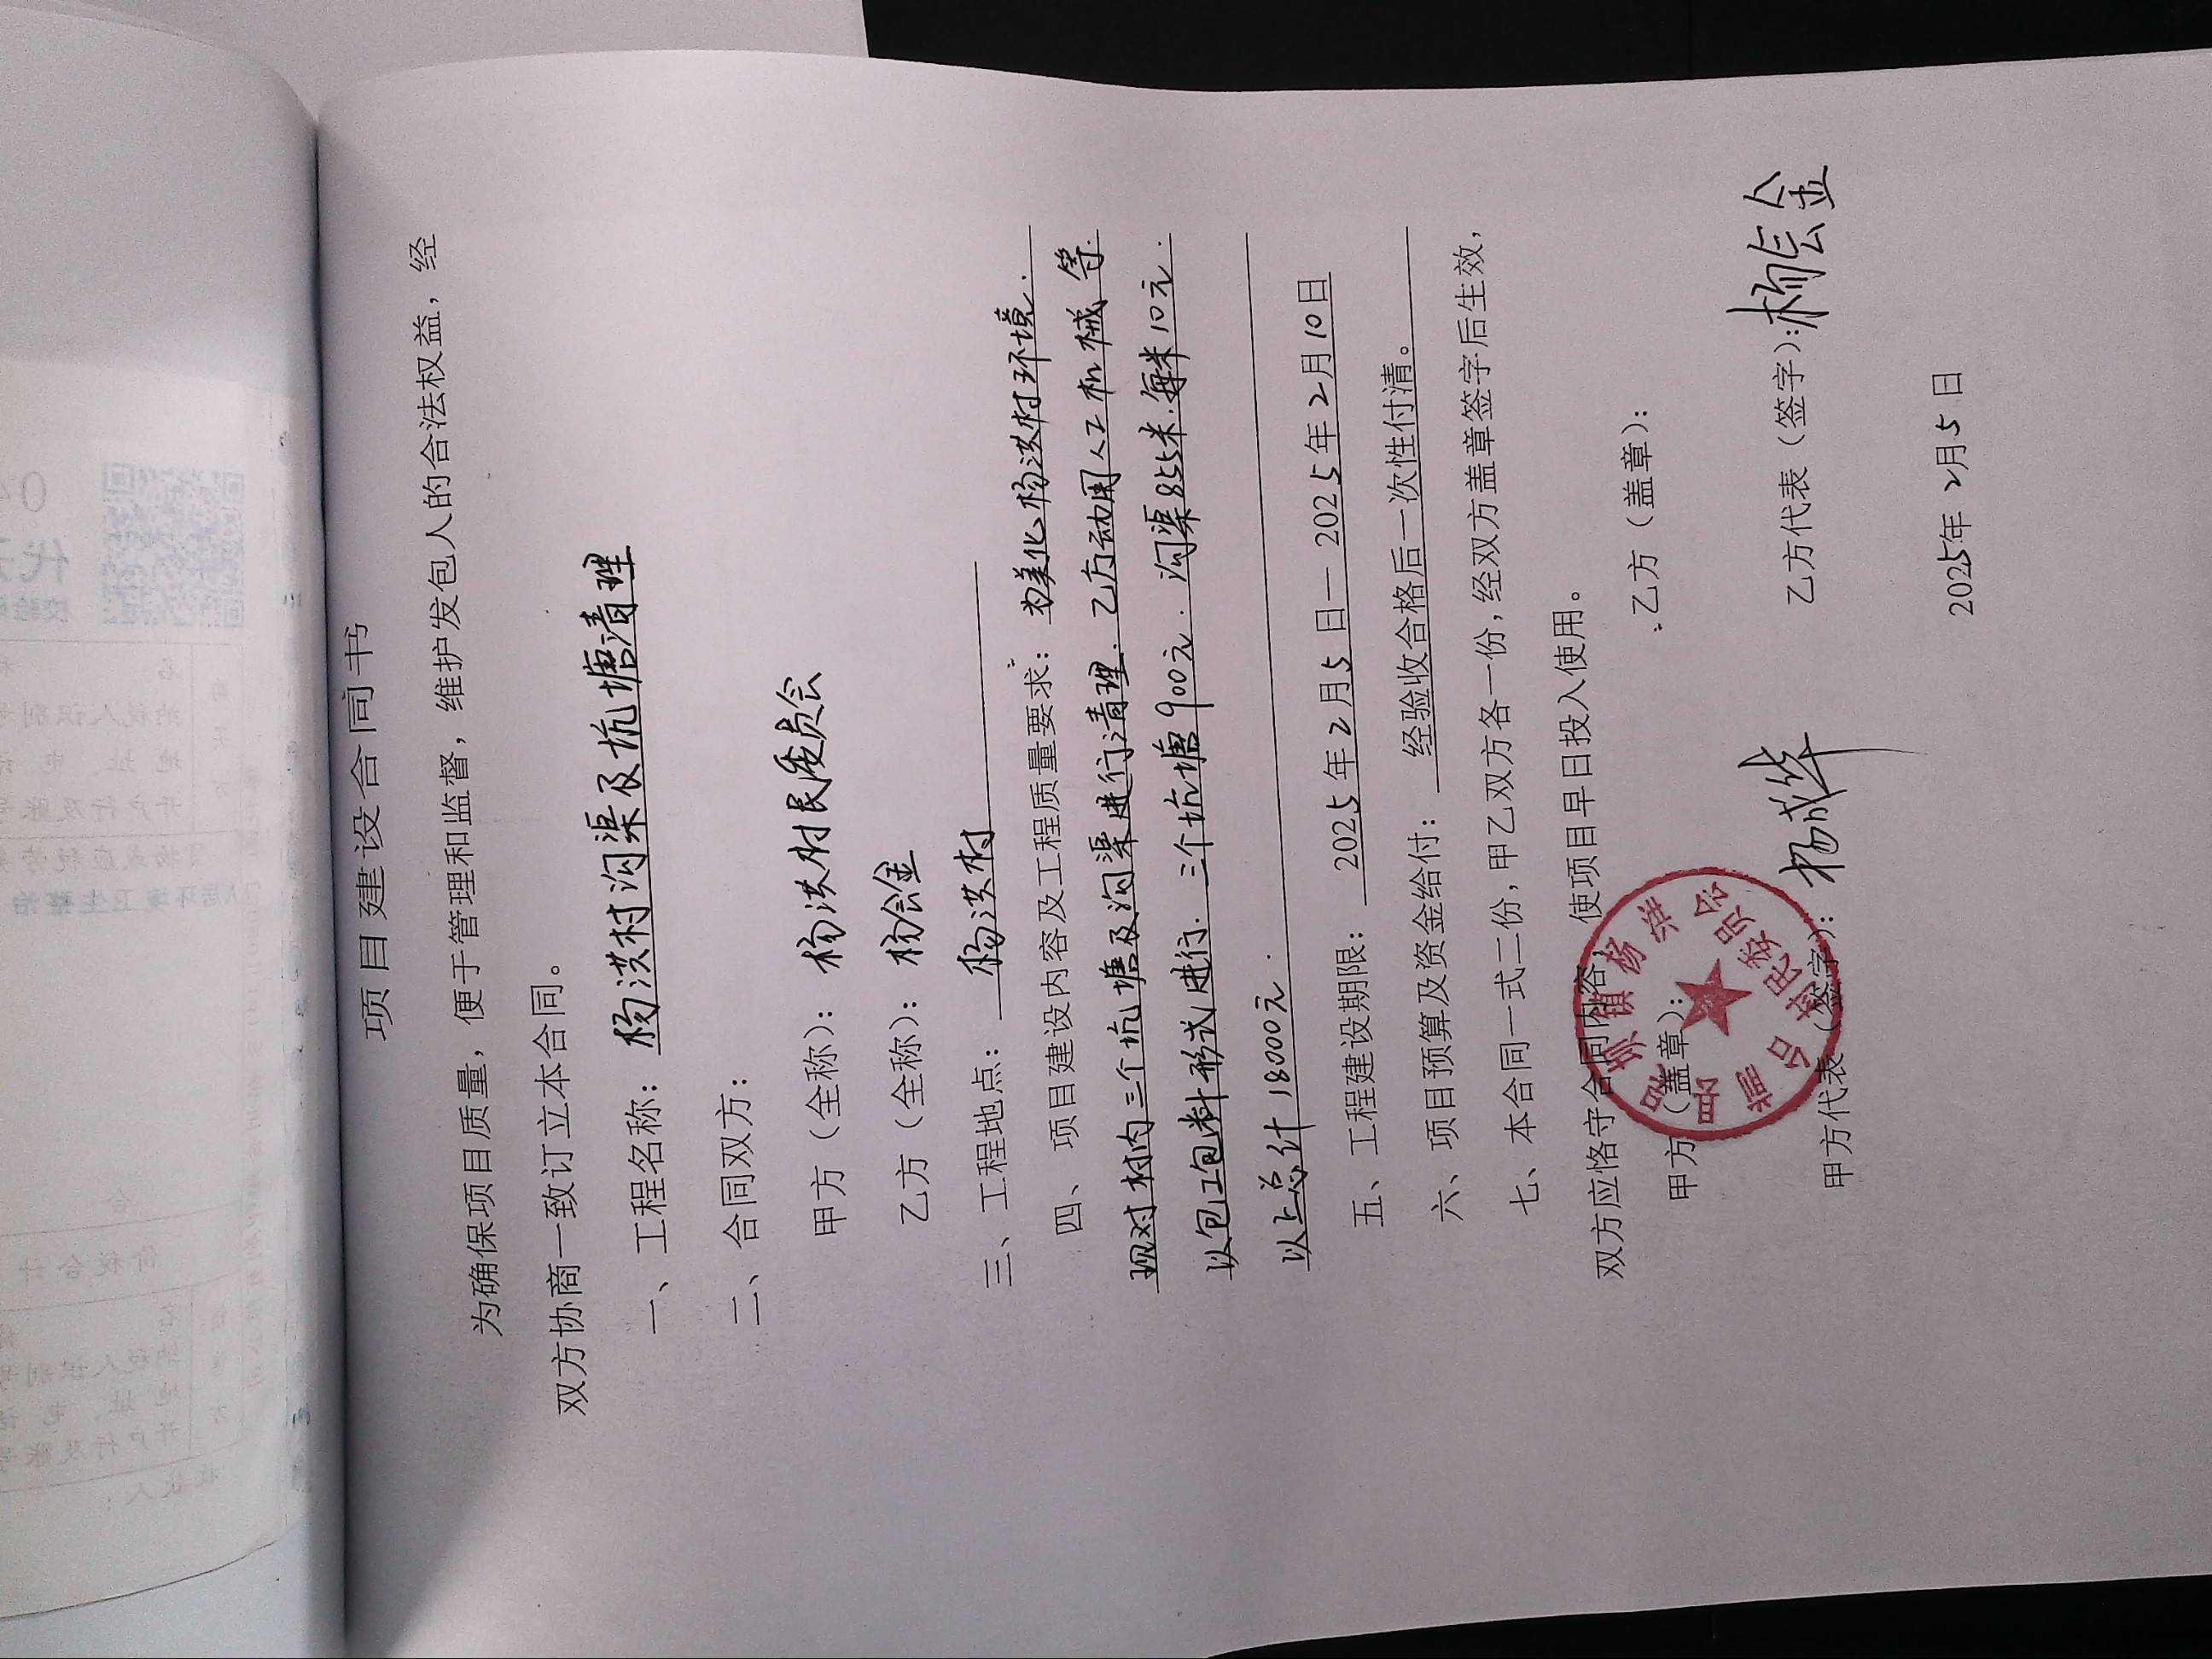 项目建设合同书
为确保项目质量，便于管理和监督，维护发包人的合法权益，经
双方协商一致订立本合同。
一、工程名称：杨洪村沟渠及坑塘清理
二、合同双方：
甲方（全称）：杨洪村民委员会
乙方（全称）：杨会金
三、工程地点：杨洪村
四、项目建设内容及工程质量要求：为美化杨洪村环境.
现对村内三个坑塘及沟渠进行清理.乙方动用人工机械等.
以包工包料形式进行.三个坑塘900元.沟渠855米.每米10元.
以上总计18000元.
五、工程建设期限：2025年2月5日—2025年2月10日
六、项目预算及资金给付：经验收合格后一次性付清。
七、本合同一式二份，甲乙双方各一份，经双方盖章签字后生效，
双方应恪守合同内容，使项目早日投入使用。
甲方（盖章）： 乙方（盖章）：
甲方代表（签字）： 乙方代表（签字）：杨会金
2025年2月5日
台 镇 杨 洪 村民委员会
价税合计
收款人：